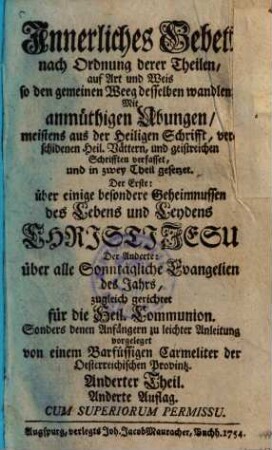 Innerliches Gebett
nach Ordnung derer Theilen,
auf Art und Weis
so den gemeinen Weeg desselben wandlen
Mit
anmüthigen Übungen/
meistens aus der Heiligen Schrifft, ver-
schidenen Heil. Vättern, und geistreichen
Schrifften verfasset,
und in zwey Theil gesetzet.
Der Erste:
über einige besondere Geheimnussen
des Lebens und Leydens
CHRISTI JESU
Der Anderte:
über alle Sonntägliche Evangelien
des Jahrs,
zugleich gerichtet
für die Heil. Communion.
Sonders denen Anfängern zu leichter Anleitung
vorgeleget
von einem Barfüssigen Carmeliter der
Oesterreichischen Provintz.
Anderter Theil.
Anderte Auflag.
CUM SUPERIORUM PERMISSU.
Augspurg, verlegts Joh. Jacob Mauracher, Buchh. 1754.